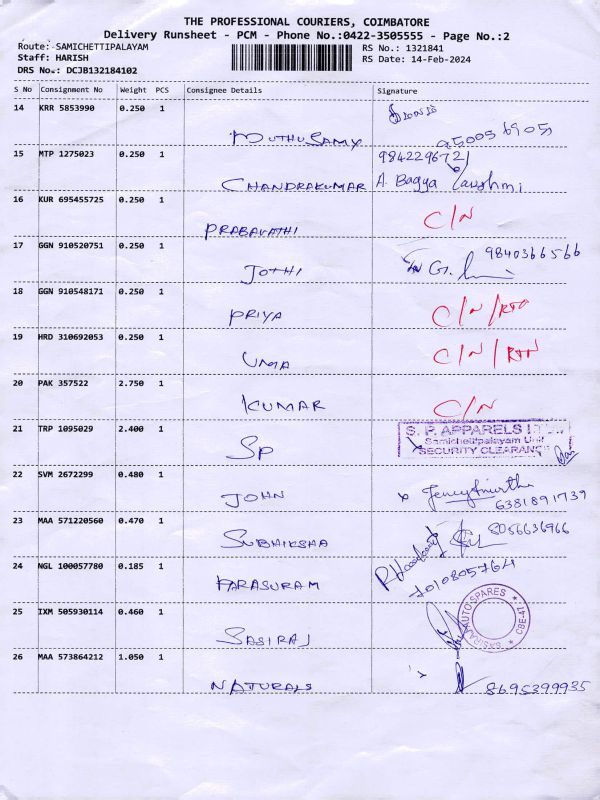 THE PROFESSIONAL COURIERS, COIMBATORE
Delivery Runsheet - PCM - Phone No.:0422-3505555 - Page No.:2
Route: SAMICHETTIPALAYAM RS No.: 1321841
Staff: HARISH RS Date: 14-Feb-2024
DRS No.: DCJB132184102
S No Consignment No Weight PCS Consignee Details Signature
14 KRR 5853990 0.250 1
MUTHUSAMY 950056905
15 MTP 1275023 0.250 1 9842296721
CHANDRAKUMAR A. Bagya Lakshmi
16 KUR 695455725 0.250 1 C/N
PRABAVATHI
17 GGN 910520751 0.250 1 9840366566
JOTHI G.
18 GGN 910548171 0.250 1 C/N/RTN
PRIYA
19 HRD 310692053 0.250 1 C/N/RTN
UMA
20 PAK 357522 2.750 1 C/N
KUMAR
21 TRP 1095029 2.400 1 S. P. APPARELS
Samichettipalayam Unit
SP SECURITY CLEARANCE
22 SVM 2672299 0.480 1
JOHN 6381891739
23 MAA 571220560 0.470 1 8056636966
SUBHIKSHA
24 NGL 100057780 0.185 1
PARASURAM 7010805764
25 IXM 505930114 0.460 1 SASIRAJ AUTO SPARES * CBE-41 *
SASIRAJ
26 MAA 573864212 1.050 1
NATURALS 8695399935